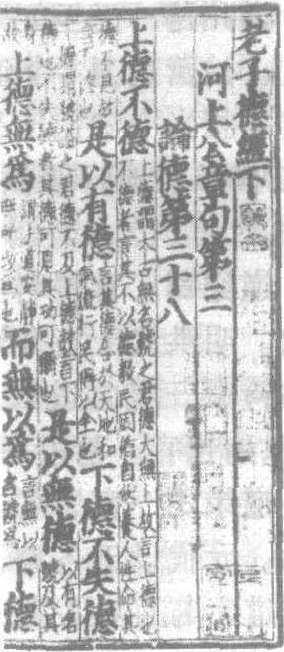 老子德經下
河上公章句第三
論德第三十八
上德不德 上德謂太古無名號之君德大無上故言上德也不德者言其不以德教民因循自然養人性命其
德不見故言不德也 是以有德 言其德合於天地和氣流行民得以全也 下德不失德
下德謂號諡之君德不及上德故言下德也不失德者其德可見其功可稱也 是以無德 以有名號及其
身故也 上德無為 謂法道安靜無所施為也 而無以為 言無以名號為 下德